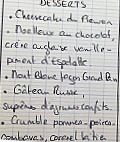 DESSERTS
• Cheesecake du Mewen
• Moelleux au chocolat,
crème anglaise vanille-
piment d'Espelette
• Mont Blanc façon Grand Pin
• Gâteau Russe,
suprêmes d'agrumes confits
• Crumble pommes-poires-
rhubarbe, caramel